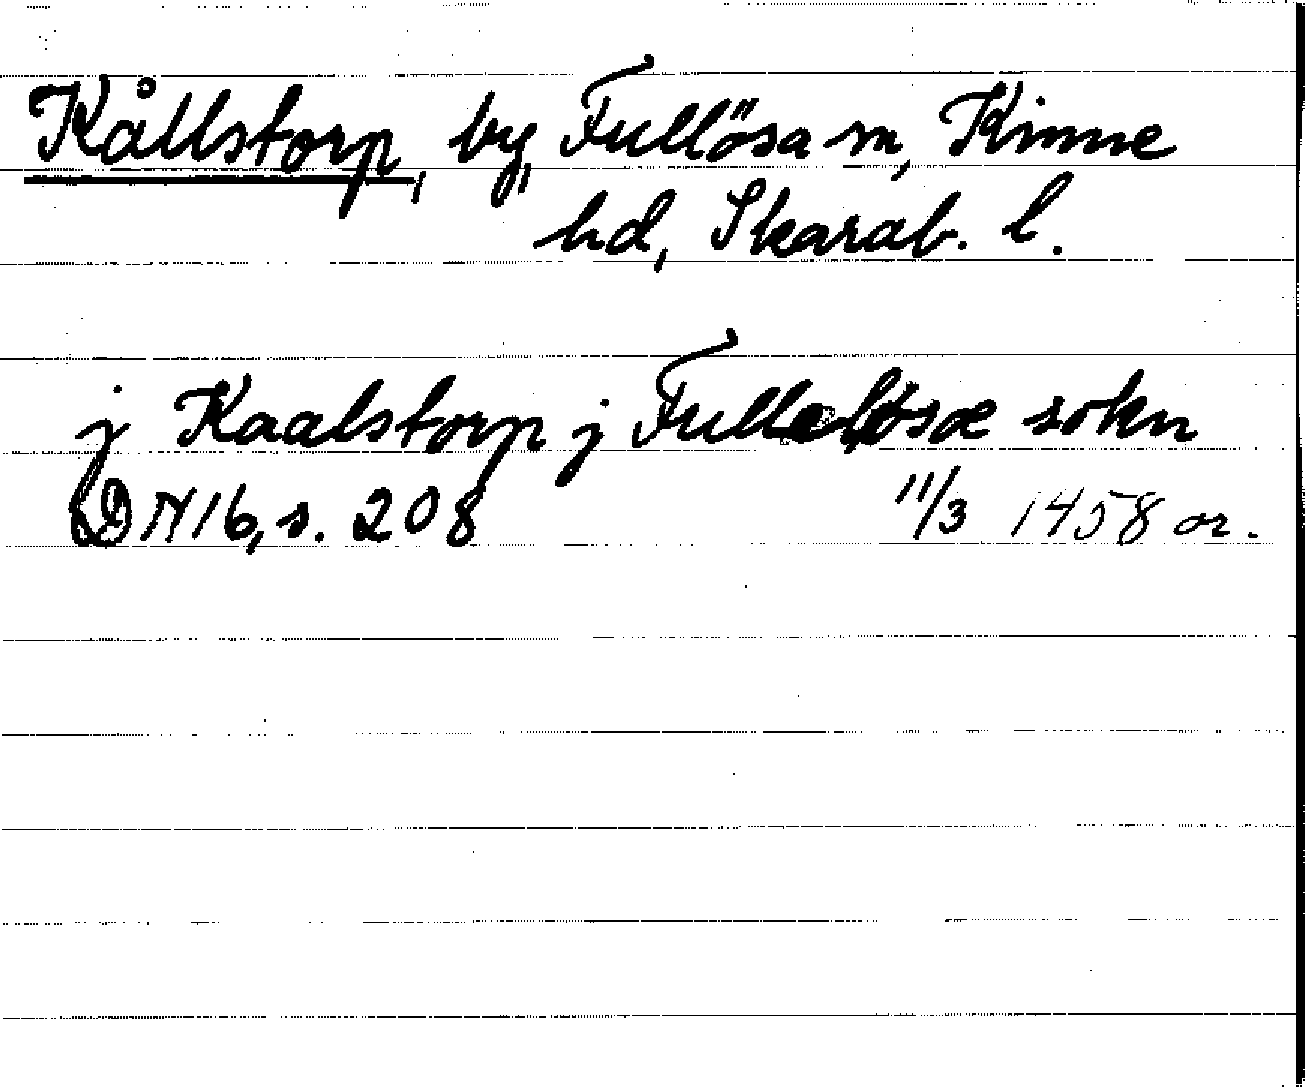 Kållstorp, by, Fullösa sn, Kinne
hd, Skarab. l.
j Kaalstorp j Fullaløsæ sokn
DN16, s. 208 11/3 1458 or.